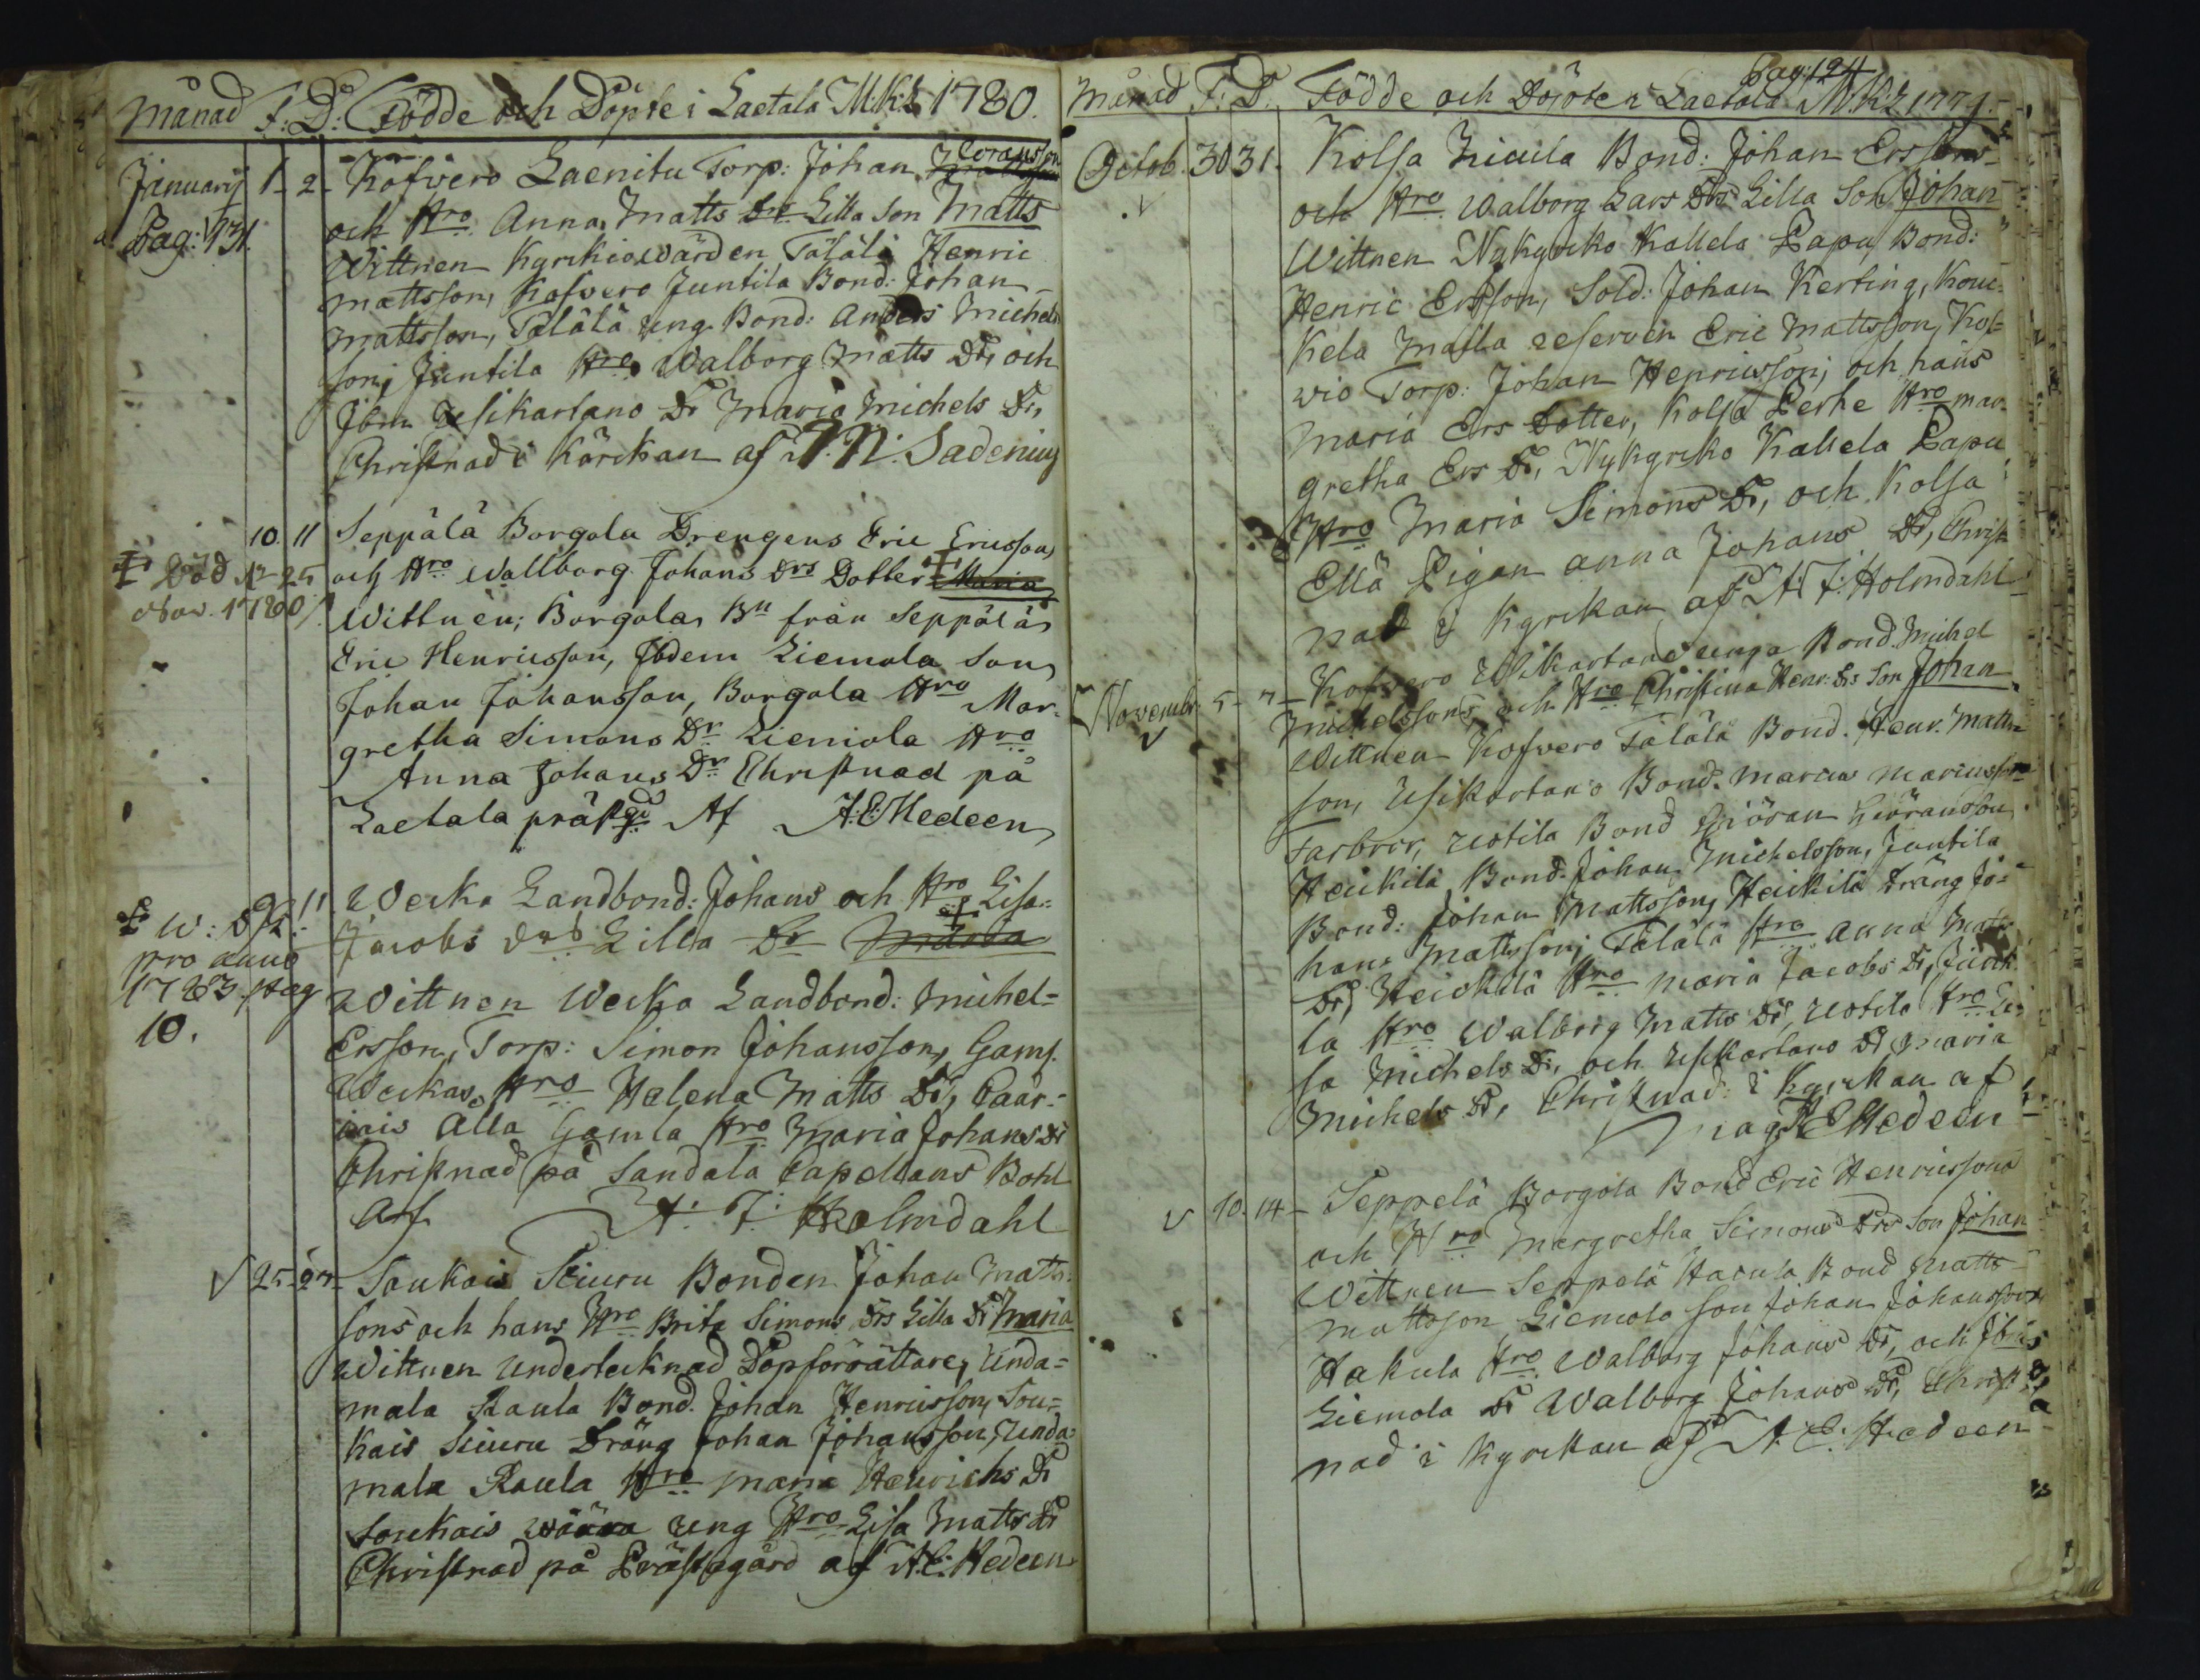 Månad F: D: Födde och Döpte i Laetala M:k:l 1780.
January 1 - 2 - Kofvero Laenitu Torp: Johan Göransson
och Hro Anna Matts Drs Lilla Son Matts
Pag: 131.
Wittnen Kyrkiowärden Tälälä Henric
Mattsson, Kofvero Juntila Bond: Johan
Mattsson, Tälälä ung Bond: Anders Michels
son, Juntila Hro Walborg Matts Dr, och
Jbm Usikartano Dr Maria Michels Dr,
Christnad i Kärckan af N: Sadenius
10. 11 Seppälä Borgola Drengens Eric Ericsson
och Hro Wallborg Johans Drs Dotter Maria
Död d. 25
Nov. 1780
Wittnen; Borgola Bn från Seppälä
Eric Henricsson, Jbdem Liemola Son
Johan Johansson, Borgola Hro Mar-
gretha Simons Dr Liemola Hro
Anna Johans Dr Christnad på
Laetala prästgd Af A: E: Hedeen
9. 11 Wecka Landbond: Johans och Hro Lisa
Jacobs Drs Lilla Dr Maria
pro anno
1783 pag
10.
Wittnen Wecka Landbond: Michel
Ersson, Torp: Simon Johansson, Gaml.
Weckas Hro Helena Matts Dr, Caar-
inis Alla Gamla Hro Maria Johans Dr
Christnad på Sandala Capellans Bohl
af A: F: Holmdahl
25 - 27 - Saukais Siuru Bonden Johan Matts-
sons och hans Hro Brita Simons Drs Lilla Dr Maria
Wittnen Undertecknad Döpförrättare, Unda-
mala Raula Bond. Johan Henricsson, Sou-
kais Siuru Dräng Johan Johansson, Unda-
mala Raula Hro Maria Henrichs Dr
Soukais ung Hro Lisa Matts Dr
Christnad på Prästagård af A: E: Hedeen
Pag: 124
Månad F: D. Födde och Döpte i Laetala M:K:l 1779.
Octob. 30 31. Kolsa Knuila Bond: Johan Erssons
och Hro Walborg Lars Drs Lilla Son Johan
Wittnen Nykyrko Kallela Papu Bond:
Henric Ersson, Sold: Johan Kerting, Kou-
kela Masla reserven Eric Mattsson, Kol-
wio Torp: Johan Henricsson; och hans
Maria Ers Dotter, Kolsa Perhe Hro Mar-
gretha Ers Dr, Nykyrko Kallela Papu
Hro Maria Simons Dr, och Kolsa
Ellä Pigan Anna Johans Dr, Christ-
nad i Kyrckan af A: F: Holmdahl
Novembr. 5 - 7 - Kofvero Usikartano unga Bond. Michel
Michelssons och Hro Christina Henr: Drs Son Johan
Wittnen Kofvero Tälälä Bond. Henr. Matts-
son, Usikartano Bond. Marcus Marcusson
Farbror, Uotila Bond Göran Göransson,
Heickilä Bond. Johan Michelsson, Juntila
Bond: Johan Mattsson, Heickilä Dräng Jo-
hans Mattsson; Tälälä Hro Anna Matts
Dr, Heickilä Hro Maria Jacobs Dr, Junti-
la Hro Walborg Matts Dr, Uotila Hro Li-
sa Michels Dr, och Usikartano Dr Maria
Michels Dr, Christnad: i Kyrckan af
Mag: A E Hedeen
10. 14 - Seppelä Borgola Bond Eric Henricssons
och Hro Margretha Simons Drs Son Johan
Wittnen Seppelä Hacula Bond Matts
Mattsson Liemola Son Johan Johansson
Hakula Hro Walborg Johans Dr, och Jbm
Liemola Dr Walborg Johans Dr, Christ-
nad i Kyrckan af A. E. Hedeen